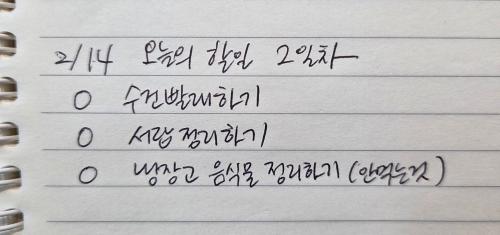 2/14 오늘의 할일 2일차
O 수건빨래하기
O 서랍정리하기
O 냉장고 음식물 정리하기 (안먹는것)